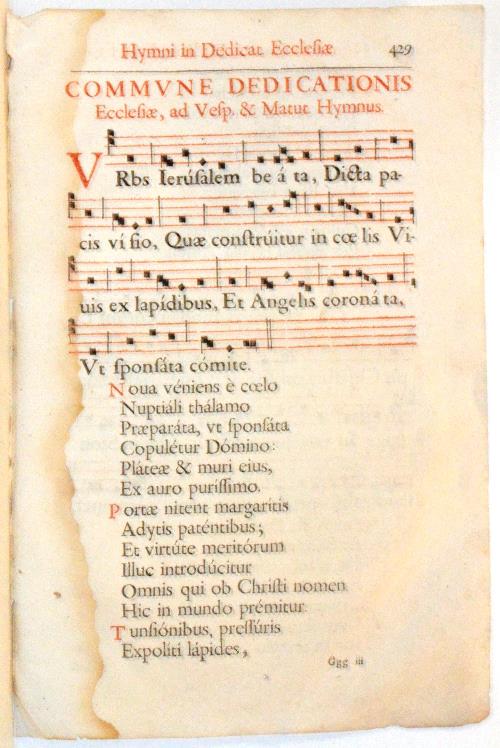 Hymni in Dedicat. Ecclesiæ 429
COMMVNE DEDICATIONIS
Ecclesiæ, ad Vesp. & Matut. Hymnus.
VRbs Ierúsalem be á ta, Dicta pa-
cis ví sio, Quæ constrúitur in cœ lis Vi-
uis ex lapídibus, Et Angelis coroná ta,
Vt sponsáta cómite.
Noua véniens è cœlo
Nuptiáli thálamo
Præparáta, vt sponsáta
Copulétur Dómino:
Pláteæ & muri eius,
Ex auro puríssimo.
Portæ nitent margarítis
Adytis paténtibus;
Et virtúte meritórum
Illuc introdúcitur
Omnis qui ob Christi nomen
Hic in mundo prémitur.
Tunsiónibus, pressúris
Expolíti lápides,
Ggg iii